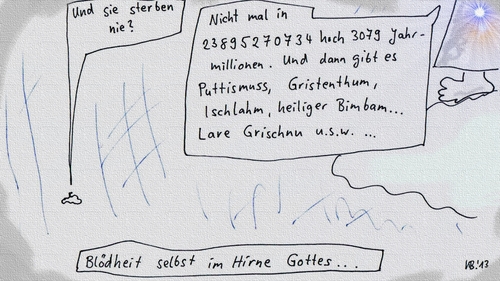 Und sie sterben
nie?
Nicht mal in
23895270734 hoch 3079 Jahr-
millionen. Und dann gibt es
Puttismuss, Gristenthum,
Ischlahm, heiliger Bimbam...
Lare Grischnu u.s.w. ...
Blödheit selbst im Hirne Gottes...
VB.'13